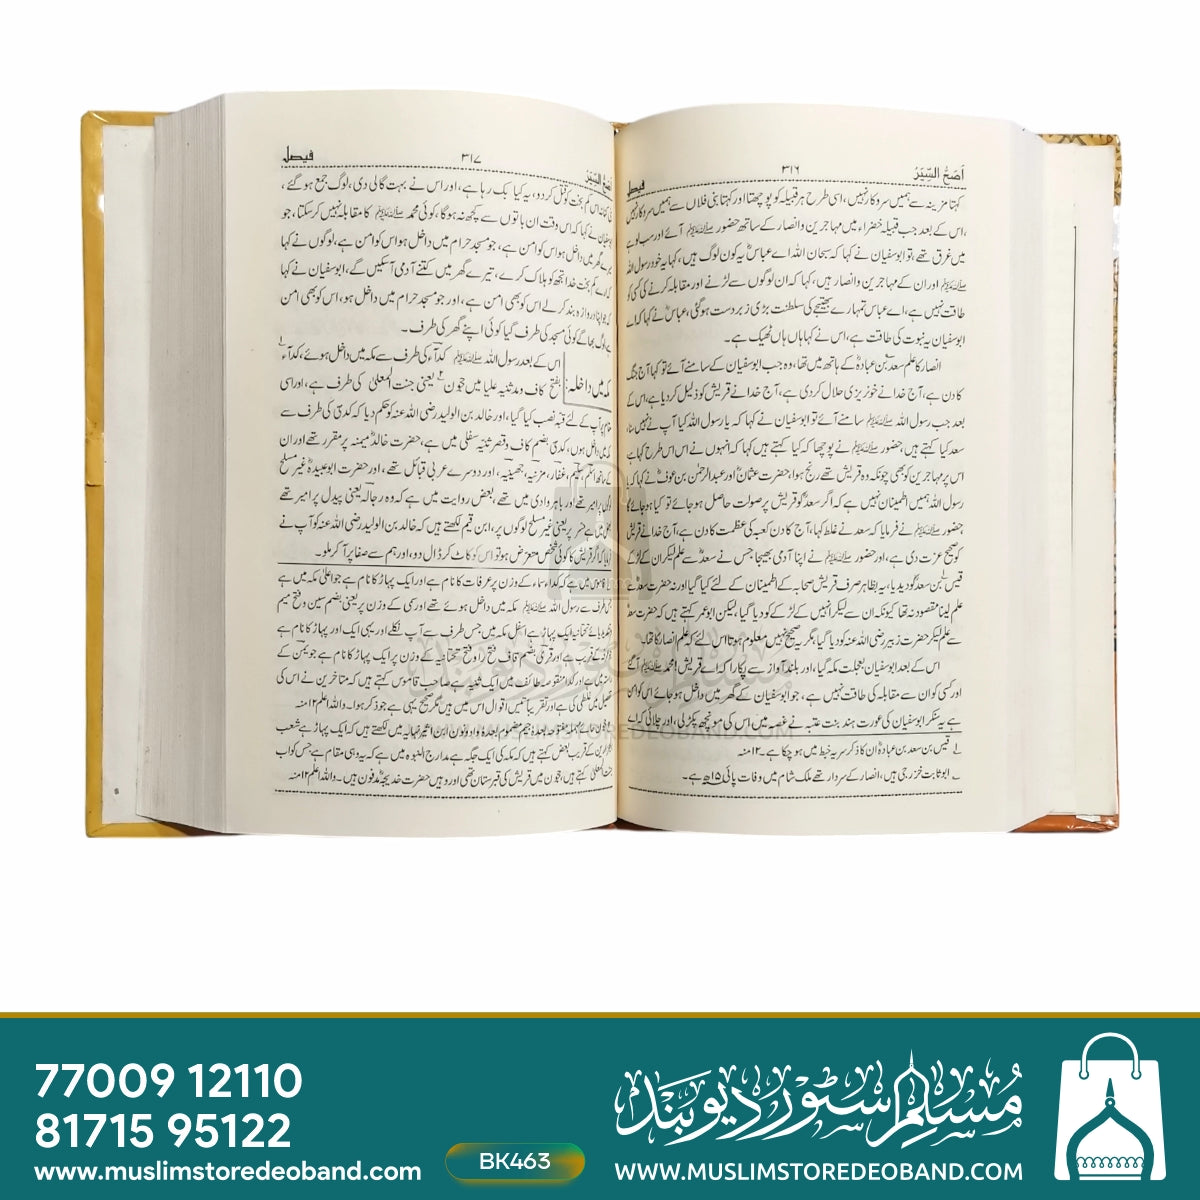 اَصَحُّ السِّیَرْ ۳۱۶ فیصل
کہتا مزینہ سے ہمیں سروکار نہیں، اسی طرح ہر قبیلہ کو پوچھتا اور کہتا بنی فلاں سے ہمیں سروکار نہیں
،اس کے بعد جب قبیلہ خضراء میں مہاجرین و انصار کے ساتھ حضور ﷺ آئے اور سب لوہے
میں غرق تھے، تو ابوسفیان نے کہا کہ سبحان اللہ اے عباسؓ یہ کون لوگ ہیں، کہا یہ خود رسول اللہ
ﷺ اور ان کے مہاجرین و انصار ہیں، کہا کہ ان لوگوں سے لڑنے اور مقابلہ کرنے کی کسی کو
طاقت نہیں ہے، اے عباس تمہارے بھتیجے کی سلطنت بڑی زبردست ہوگئی، عباسؓ نے کہا کہ اے
ابوسفیان یہ نبوت کی طاقت ہے، اس نے کہا ہاں ہاں ٹھیک ہے۔
انصار کا علم سعد بن عبادہؓ کے ہاتھ میں تھا، وہ جب ابوسفیان کے سامنے آئے تو کہا آج جنگ
کا دن ہے، آج خدا نے خونریزی حلال کردی ہے، آج خدا نے قریش کو ذلیل کردیا ہے، اس کے
بعد جب رسول اللہ ﷺ سامنے آئے تو ابوسفیان نے کہا کہ یا رسول اللہ کیا آپ نے نہیں سنا،
سعد کیا کہتے ہیں، حضور ﷺ نے پوچھا کہ کیا کہتے ہیں کہا کہ انہوں نے اس اس طرح کہا ہے
اس پر مہاجرین کو بھی چونکہ وہ قریش تھے رنج ہوا، حضرت عثمانؓ اور عبدالرحمٰن بن عوفؓ نے کہا کہ یا
رسول اللہ ہمیں اطمینان نہیں ہے کہ اگر سعدؓ کو قریش پر صولت حاصل ہوجائے تو کیا ہوجائے گا
حضور ﷺ نے فرمایا کہ سعد نے غلط کہا، آج کا دن کعبہ کی عظمت کا دن ہے، آج خدا نے قریش
کو صحیح عزت دی ہے، اور حضور ﷺ نے اپنا آدمی بھیجا جس نے سعدؓ سے علم لیکر ان کے لڑکے
قیس بن سعد کو دیدیا، یہ بظاہر صرف قریش صحابہ کے اطمینان کے لئے کیا گیا ورنہ حضرت سعد سے
علم لینا مقصود نہ تھا کیونکہ ان سے لیکر انہیں کے لڑکے کو دیا گیا، لیکن ابو عمر کہتے ہیں کہ حضرت سعد
سے علم لیکر حضرت زبیر رضی اللہ عنہ کو دیا گیا، مگر یہ صحیح نہیں معلوم ہوتا اس لئے کہ علم انصار کا تھا۔
اس کے بعد ابوسفیان بعجلت مکہ گیا، اور بلند آواز سے پکارا کہ اے قریش! محمد ﷺ آگئے
اور کسی کو ان سے مقابلہ کی طاقت نہیں ہے، جو ابوسفیان کے گھر میں داخل ہوجائے اس کو امن
ہے یہ سنکر ابوسفیان کی عورت ہند بنت عتبہ نے غصہ میں اس کی مونچھ پکڑ لی، اور چلائی کہ اے
قیس بن سعد بن عبادہ ان کا ذکر سریہ خبط میں ہوچکا ہے۔ ۱۲ منہ
ابو ثابت خزرجی ہیں، انصار کے سردار تھے ملک شام میں وفات پائی ۱۵ھ ہے۔
اَصَحُّ السِّیَرْ ۳۱۷ فیصل
کم بخت کو قتل کردو، یہ کیا بک رہا ہے، اور اس نے بہت گالی دی، لوگ جمع ہوگئے،
نے کہا کہ اس وقت ان باتوں سے کچھ نہ ہوگا، کوئی محمد ﷺ کا مقابلہ نہیں کرسکتا، جو
گھر میں داخل ہو اس کو امن ہے، جو مسجد حرام میں داخل ہو اس کو امن ہے، لوگوں نے کہا
کم بخت خدا تجھ کو ہلاک کرے، تیرے گھر میں کتنے آدمی آسکیں گے، ابوسفیان نے کہا
کہ جو اپنا دروازہ بند کرلے اس کو بھی امن ہے، اور جو مسجد حرام میں داخل ہو، اس کو بھی امن
لوگ بھاگے کوئی مسجد کی طرف گیا کوئی اپنے گھر کی طرف۔
مکہ میں داخلہ: اس کے بعد رسول اللہ ﷺ کداء کی طرف سے مکہ میں داخل ہوئے، کداء
بفتح کاف و مد ثنیہ علیا میں حجون یعنی جنت المعلیٰ کی طرف ہے، اور اسی
آپ کے لئے قبہ نصب کیا گیا، اور خالد بن الولید رضی اللہ عنہ کو حکم دیا کہ کدی کی طرف سے
داخل ہوں، کدی بضم کاف و قصر ثنیہ سفلی میں ہے، حضرت خالدؓ میمنہ پر مقرر تھے اور ان
کے ساتھ اسلم، سلیم، غفار، مزنیہ، جھینیہ، اور دوسرے عربی قبائل تھے، اور حضرت ابوعبیدہؓ غیر مسلح
پر امیر تھے اور باہر وادی میں تھے، بعض روایت میں ہے کہ وہ رجالہ یعنی پیدل پر امیر تھے
حسر پر یعنی غیر مسلح لوگوں پر، ابن قیم لکھتے ہیں کہ خالد بن الولید رضی اللہ عنہ کو آپ نے
فرمایا کہ اگر قریش کا کوئی شخص معترض ہو تو اس کو کاٹ کر ڈال دو، اور ہم سے صفا پر آکر ملو۔
میں ہے کہ کداء سماء کے وزن پر عرفات کا نام ہے اور ایک پہاڑ کا نام ہے جو اعلیٰ مکہ میں ہے
طرف سے رسول اللہ ﷺ مکہ میں داخل ہوئے تھے اور سمی کے وزن پر یعنی بضم سین و فتح میم
یائے تحتانیہ ایک پہاڑ ہے اسفل مکہ میں جس طرف سے آپ نکلے اور یہی ایک اور پہاڑ کا نام ہے
کے قریب ہے اور قری بضم قاف فتح را و فتح تحتانیہ کے وزن پر ایک پہاڑ کا نام ہے جو یمن کے
اور کدا منقوصہ طائف میں ایک ثنیہ ہے صاحب قاموس کہتے ہیں کہ متاخرین نے اس کی
میں غلطی کی ہے اور تقریباً تیس اقوال اس میں ہیں مگر صحیح یہی ہے جو ذکر ہوا۔ واللہ اعلم ۱۲ منہ
مفتوحہ بعدہ جیم مضموم بعدہ واو و نون ابن اثیر نہایہ میں لکھتے ہیں کہ ایک پہاڑ ہے شعب
کے قریب بعض کہتے ہیں کہ مکہ کی ایک جگہ ہے مدارج النبوہ میں ہے کہ یہ وہی مقام ہے جس کو اب
جنت المعلیٰ کہتے ہیں، حجون میں قریش کی قبرستان تھی اور وہیں حضرت خدیجہؓ مدفون ہیں۔ واللہ اعلم ۱۲ منہ
مسلم سٹور دیوبند
WWW.MUSLIMSTOREDEOBAND.COM
77009 12110
81715 95122
www.muslimstoredeoband.com
BK463
مسلم سٹور دیوبند
WWW.MUSLIMSTOREDEOBAND.COM